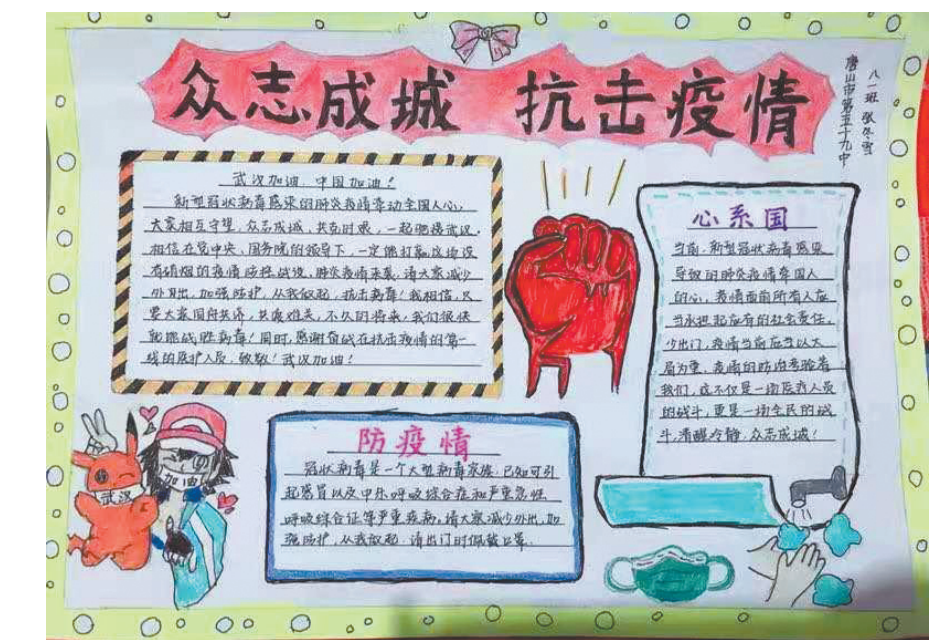 众志成城 抗击疫情
唐山市第五十九中
八一班 张冬雪
武汉加油，中国加油！
新型冠状病毒感染的肺炎疫情牵动全国人心，
大家相互守望，众志成城，共克时艰，一起驰援武汉。
相信在党中央、国务院的领导下，一定能打赢这场没
有硝烟的疫情防控战役，肺炎疫情来袭，请大家减少
外出，加强防护，从我做起，抗击病毒！我相信，只
要大家同舟共济，共度难关，不久的将来，我们很快
能战胜病毒！同时，感谢奋战在抗击疫情的第一
线的医护人员，致敬！武汉加油！
心系国
当前，新型冠状病毒感染
导致的肺炎疫情牵国人
的心，疫情面前所有人应
当承担起应有的社会责任，
少出门，疫情当前应当以大
局为重，疫情的防治考验着
我们，这不仅是一场医疗人员
的战斗，更是一场全民的战
斗，清醒冷静，众志成城！
防疫情
冠状病毒是一个大型病毒家族，已知可引
起感冒以及中东呼吸综合症和严重急性
呼吸综合征等严重疾病，请大家减少外出，加
强防护，从我做起，请出门时佩戴口罩。
加油
武汉